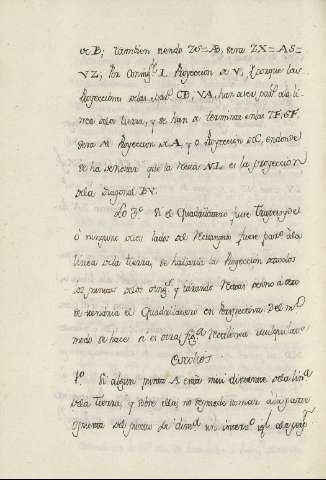 de B; tambien siendo ZO=AD, sera ZX=AS=
VZ; Por Consig.te I. Proyeccion de V; y porque las
Proyecciones de las paral.s CB, VA, han de ser paral.s a la li-
nea de la tierra, y se han de terminar en las ZF, EF,
sera M Proyeccion de A, y O Proyeccion de C, en donde
se ha de notar que la recta NL es la proyeccion
de la diagonal BV.
Lo 3.º Si el Quadrilatero fuere Trapezoyde
ó ninguno de los lados del Rectangulo fuere paral.º a la
linea de la tierra, se hallaria la Proyeccion de todos
los puntos de los ang.s y tirando rectas de uno á otro
se tendria el Quadrilatero en Perspectiva. Del m.º
modo se hace si es otra fig.ª Rectilinea qualquiera
Escolios
1.º Si algun punto A está mui distante de la lin.ª
de la Tierra, y sobre ella no se puede tomar a la parte
opuesta del punto de dist.ª un interv.º igl. a la perp.r